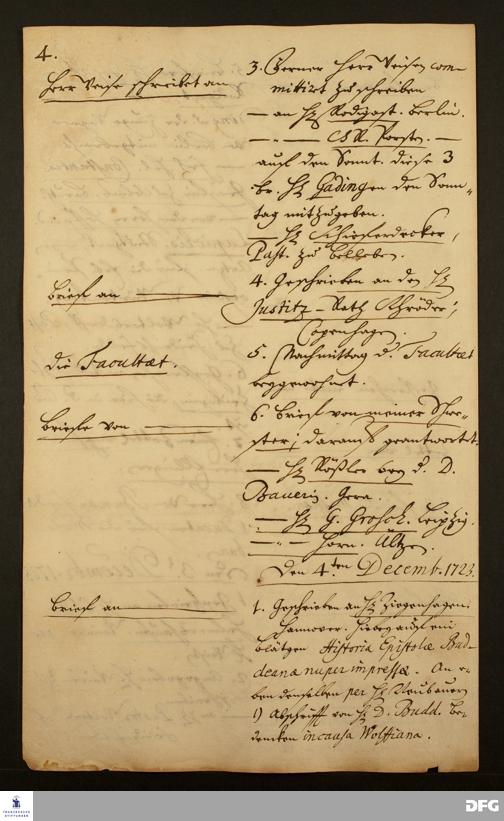 4.
Herr Weise schreibet an
3. Ferner Herr Weisen com-
mittirt zu schreiben
— an H. Rodigast. Berlin.
— - — CSR. Porste. —
auf den Sonnt. diese 3
br. H. Gadingen den Sonn-
tag mitzugeben.
— H. Schieferdecker,
Past. zu
Brief an ———
4. Geschrieben an den H.
Justitz-Rath Schröder,
Copenhagen.
die Facultæt.
5. Nachmittag d. Facultæt
beygewohnt.
Briefe von ———
6. Brief von meiner Schwe-
ster; darauf geantwortet.
— H. Rößler bey d. D.
Bauerin. Gera.
— H. G. Grosch. Leipzig.
— - — Horn. Ültze.
Den 4.ten Decemb. 1723.
Brief an ———
1. Geschrieben an H. Ziegenhagen.
Hannover. Hiebey auf ein
blätgen Historia Epistolæ Bud-
deanæ nuper impressæ. An e-
ben denselben per H. Neubauer
1) Abschrifft von H. D. Budd. Be-
dencken in causa Wolffiana.
FRANCKESCHE
STIFTUNGEN
DFG